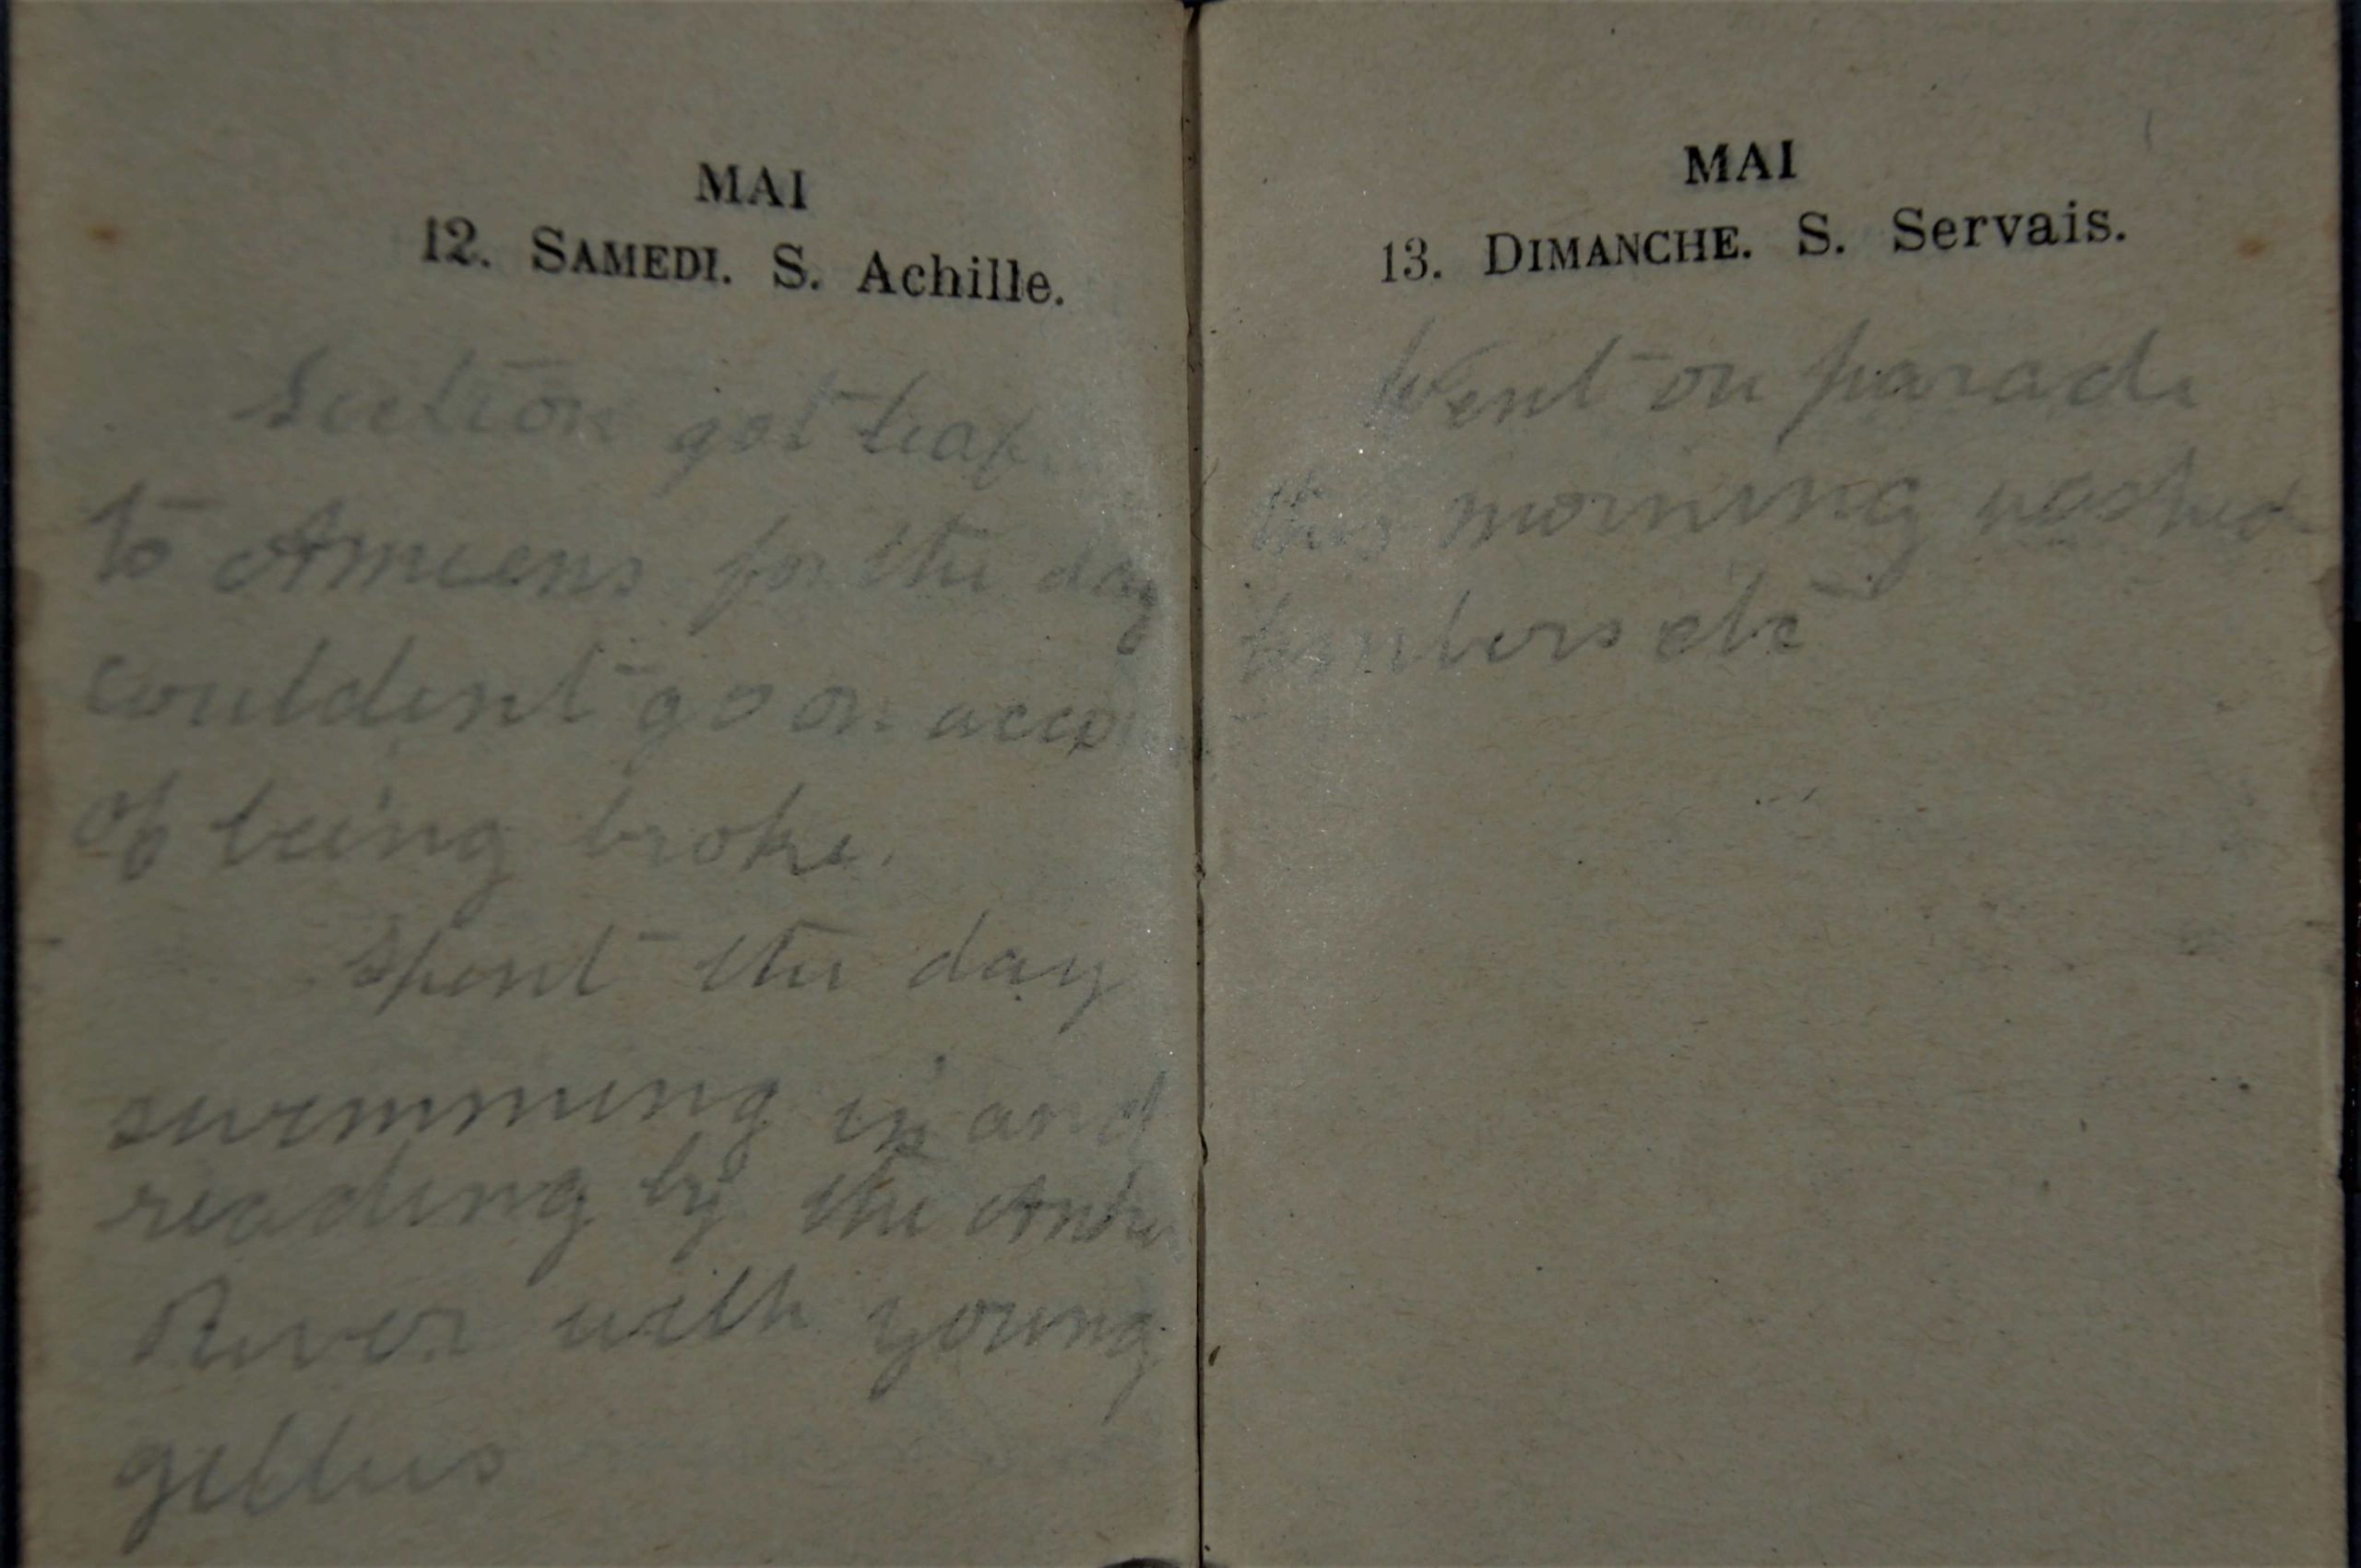 MAI
12. SAMEDI. S. Achille.
Section got leaf
to Amiens for the day
couldent go on acco
of being broke.
Spent the day
swimming in and
reading by the
River with young
MAI
13. DIMANCHE. S. Servais.
Went on parade
this morning washed
limbers etc